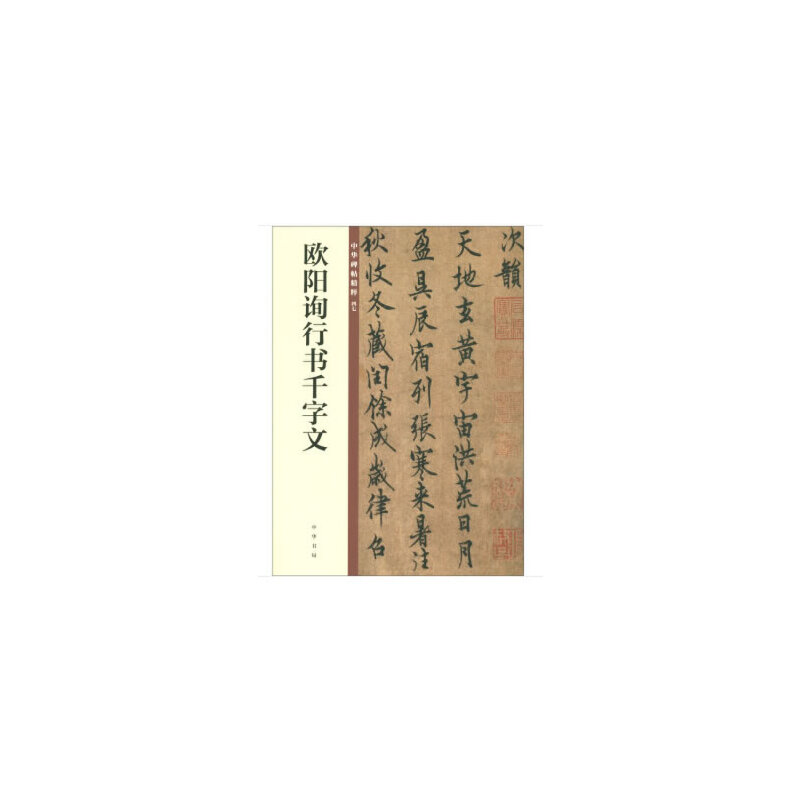 欧阳询行书千字文
中华书局
中华碑帖精粹 四七
次韻
天地玄黃宇宙洪荒日月
盈昃辰宿列張寒来暑往
秋收冬藏閏餘成歲律召